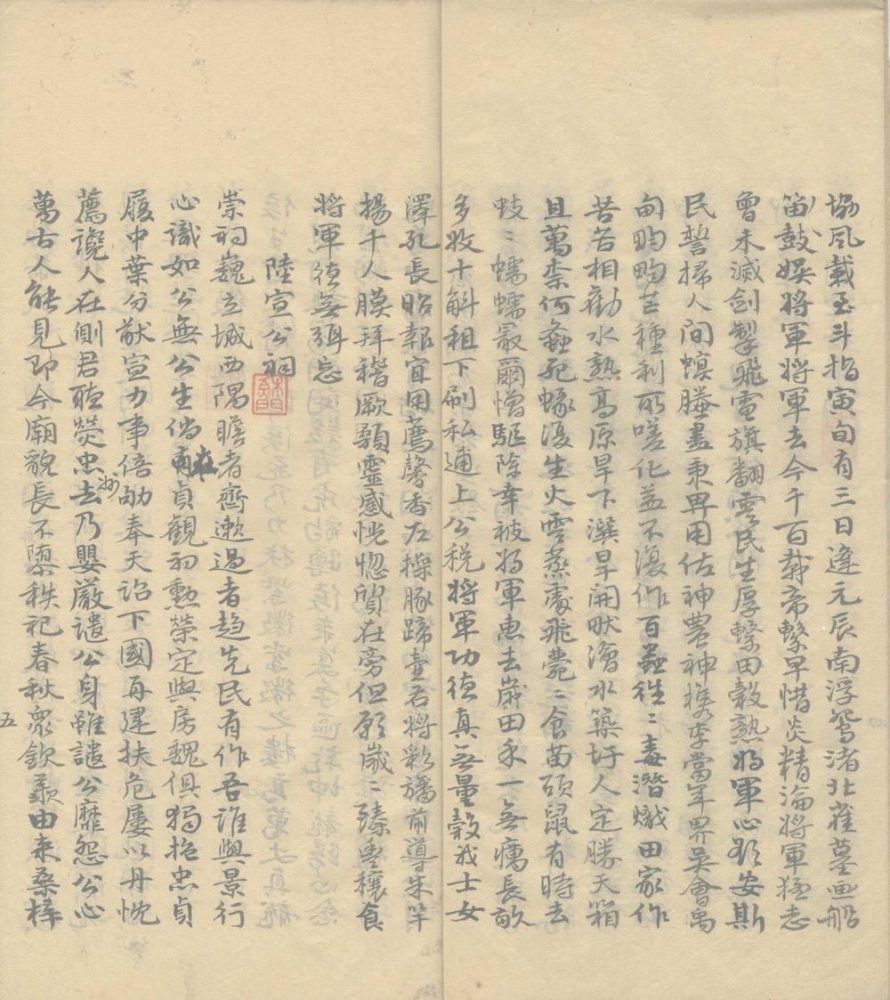 協風載至斗指寅旬有三日逢元辰南浮鴛渚北雀墓畫船
笛鼓娛將軍將軍去今千百載帝繫早惜炎精淪將軍猛志
曾未減劍掣飛電旗翻雲民生厚繫田穀熟將軍心欲安斯
民誓掃人間螟螣盡秉畀用佐神農神攜李當年界吳會萬
甸畇畇芒種利所嗟化益不復作百蟲徃二毒潛熾田家作
苦苦相勸水熟高原旱下潠旱開畎澮水築圩人定勝天箱
且萬柰何螽死蝝復生火雲蒸處飛薨二食苗碩鼠有時去
蚑二蠕蠕最爾憎驅除幸被將軍惠去歲田禾一無癘長畝
多收十斛租下刷私逋上公稅將軍功德真無量穀我士女
澤孔長昭報宜用薦馨香左操豚蹄壺若將彩旛前導朱竿
揚千人膜拜稽厥顙靈感恍惚質在旁但願歲二臻豐穰食
將軍德無弭忘
陸宣公祠
崇祠巍立城西隅瞻者齊漱過者趨先民有作吾誰與景行
心識如公無公生倘在貞觀初勳榮定與房魏俱獨抱忠貞
履中葉分猷宣力事倍劬奉天詔下國再建扶危屢以丹忱
薦讒人在側君聽熒忠州去乃嬰嚴譴公身雖譴公靡怨公心
萬古人能見即今廟貌長不隳秩祀春秋眾欽羨由來桑梓
五